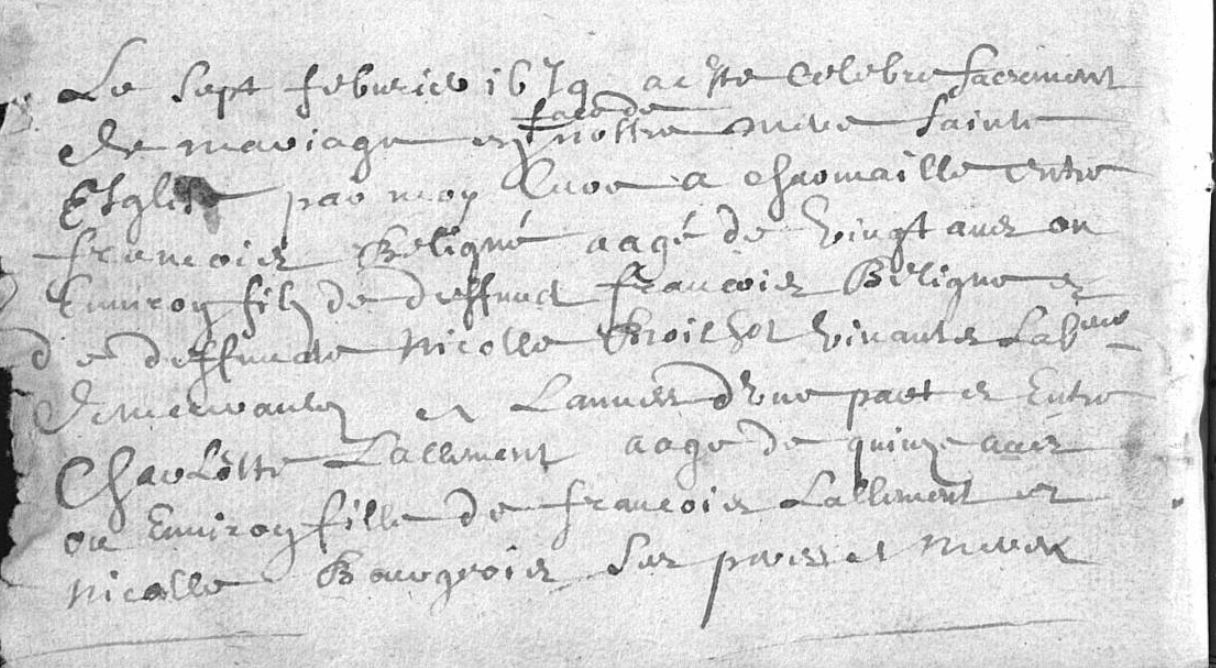 Le sept febvrier 1679 a este Celebre sacrement
de mariage en face de nostre mere sainte
Eglise par moy Curé a charmaille Entre
francois Beligné aagé de vingt ans ou
Environ filz de deffunct francois Beligne et
de deffuncte Nicolle vivantz Labeurs
demeurantz et Lannes d'une part et Entre
Charlotte Lallement aage de quinze ans
ou Environ fille de francois Lallement et
Nicolle Bourgeois ses peres et meres